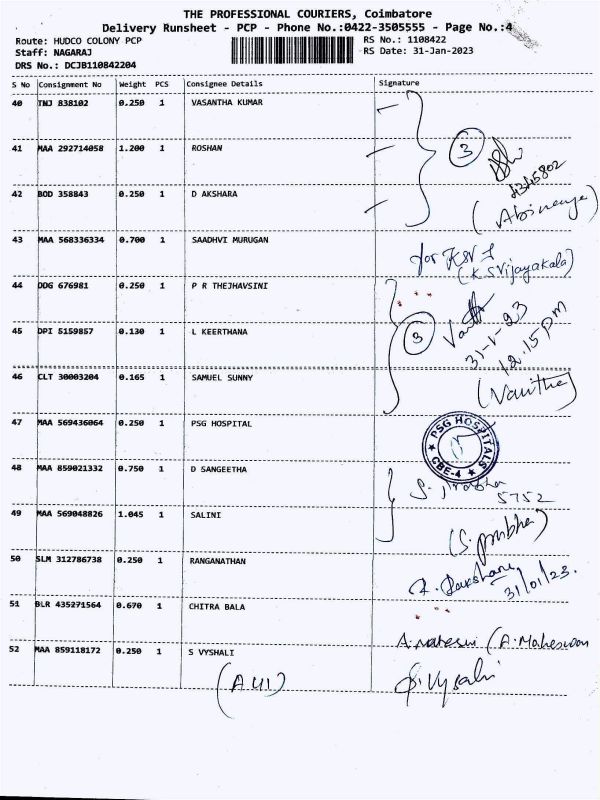 THE PROFESSIONAL COURIERS, Coimbatore
Delivery Runsheet - PCP - Phone No.:0422-3505555 - Page No.:4
Route: HUDCO COLONY PCP
RS No.: 1108422
Staff: NAGARAJ
RS Date: 31-Jan-2023
DRS No.: DCJB110842204
S No Consignment No Weight PCS Consignee Details Signature
40 TNJ 838102 0.250 1 VASANTHA KUMAR
41 MAA 292714058 1.200 1 ROSHAN
3
4345802
42 BOD 358843 0.250 1 D AKSHARA
(Abinaya)
43 MAA 568336334 0.700 1 SAADHVI MURUGAN
for KSV
(K S Vijayakala)
44 DDG 676981 0.250 1 P R THEJHAVSINI
45 DPI 5159857 0.130 1 L KEERTHANA
3
31-1-23
12.15pm
46 CLT 30003204 0.165 1 SAMUEL SUNNY
(Vanitha)
47 MAA 569436064 0.250 1 PSG HOSPITAL
PSG HOSPITALS
CBE-4
48 MAA 859021332 0.750 1 D SANGEETHA
S. Prabha
5752
49 MAA 569048826 1.045 1 SALINI
(S. prabha)
50 SLM 312786738 0.250 1 RANGANATHAN
31/01/23.
51 BLR 435271564 0.670 1 CHITRA BALA
(A. Maheswari
52 MAA 859118172 0.250 1 S VYSHALI
S. Vysali